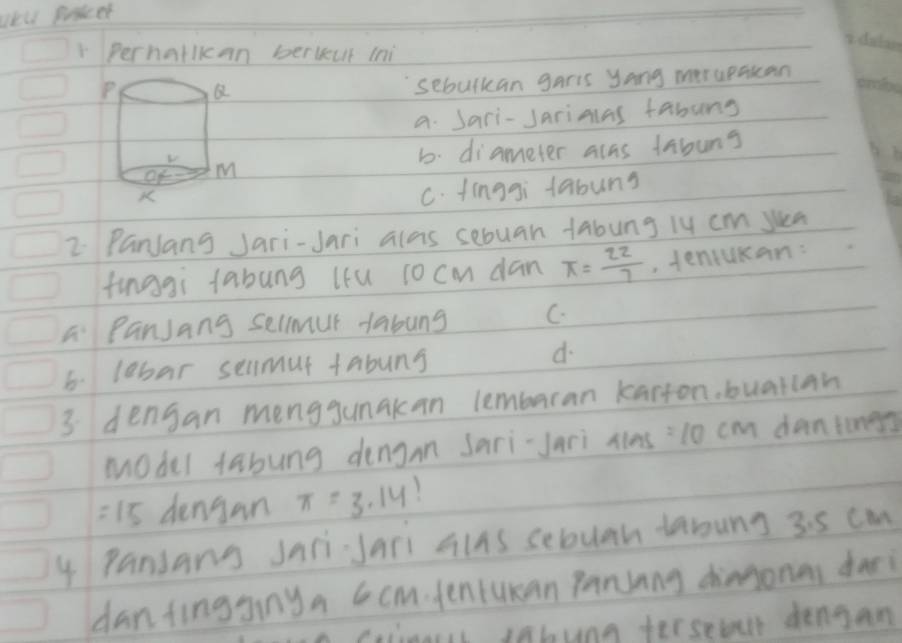 Paket
1. Perhatikan berikut ini
P Q
O L M
K
sebutkan garis yang merupakan
a. Jari-Jari alas tabung
b. diameter alas tabung
c. tinggi tabung
2. Panjang Jari-Jari alas sebuah tabung 14 cm jika
tinggi tabung itu 10 cm dan π = 22/7. tentukan:
a. Panjang selimut tabung c.
b. lebar selimut tabung d.
3. dengan menggunakan lembaran karton. buatlah
model tabung dengan Jari-Jari alas = 10 cm dan tinggi
= 15 dengan π = 3.14!
4 Panjang Jari-Jari alas sebuah tabung 3.5 cm
dan tingginya 6 cm. tentukan Panjang diagonal dari
selimut tabung tersebut dengan